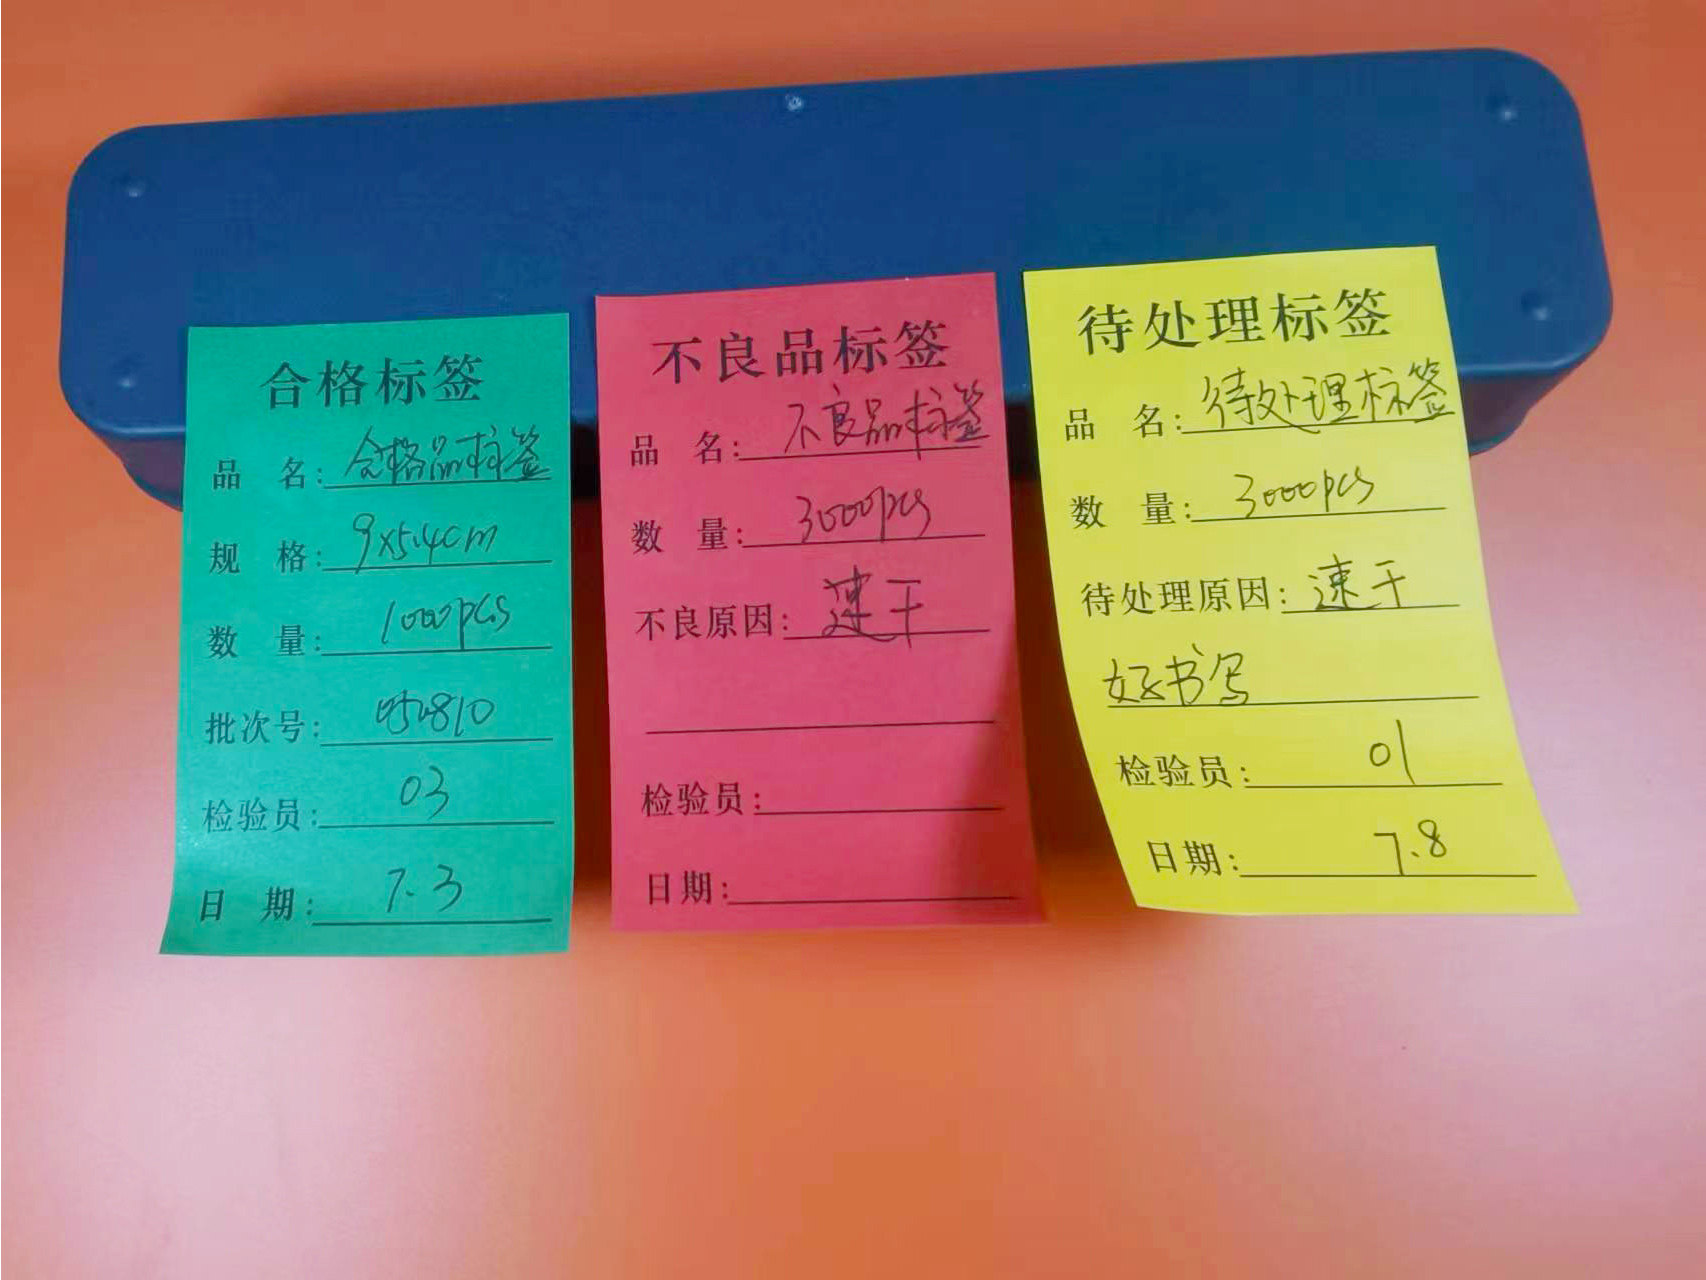 合格标签
品 名: 合格品标签
规 格: 9x5.4cm
数 量: 1000pcs
批次号: 052810
检验员: 03
日 期: 7.3
不良品标签
品 名: 不良品标签
数 量: 3000pcs
不良原因: 速干
检验员:
日期:
待处理标签
品 名: 待处理标签
数 量: 3000pcs
待处理原因: 速干
好书写
检验员: 01
日期: 7.8